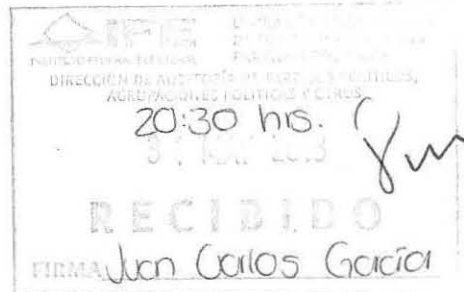 IFE
INSTITUTO FEDERAL ELECTORAL
DIRECCIÓN DE AUDITORÍA DE PARTIDOS POLÍTICOS,
AGRUPACIONES POLÍTICAS Y OTROS
20:30 hrs.
RECIBIDO
FIRMA Juan Carlos García